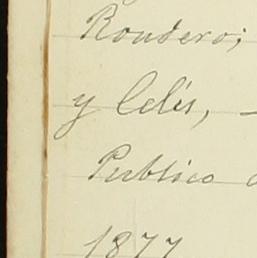 Rondero;
y Celis, —
Publico
1877